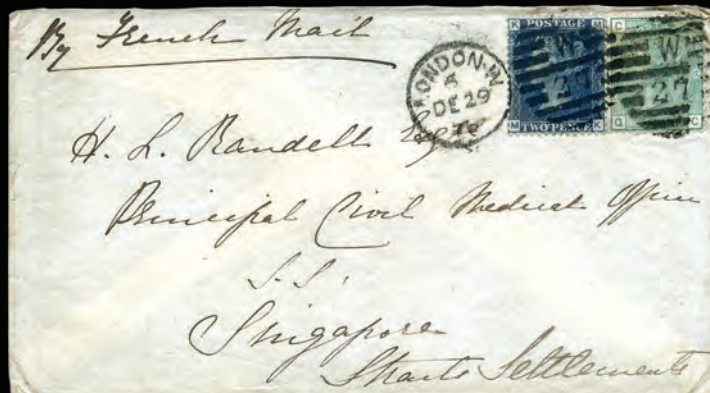 By French Mail
LONDON·W
5
DE 29
K POSTAGE M
W
27
M TWO PENCE K
C
W
27
Q C
H. L. Randell Esqre
Principal Civil Medical Officer
S.S.
Singapore
Straits Settlements